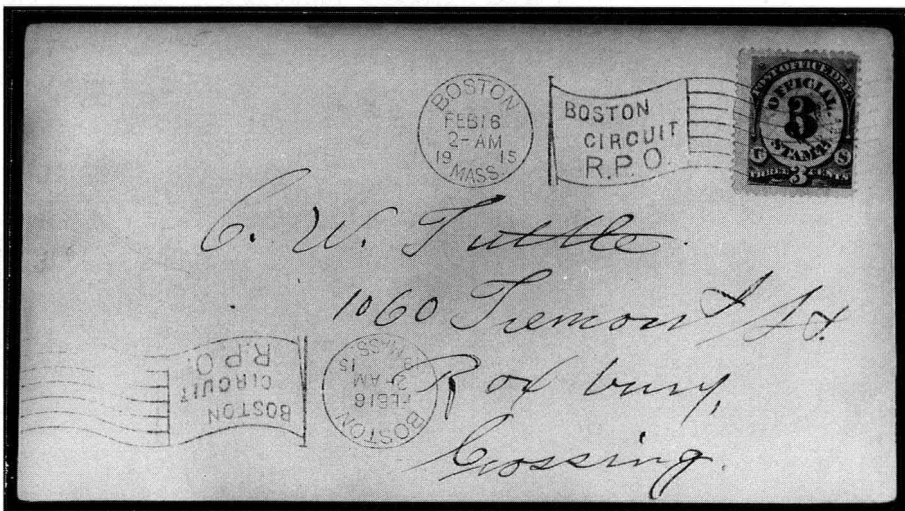 BOSTON
FEB 16
2-AM
19 15
MASS.
BOSTON
CIRCUIT
R.P.O.
POST OFFICE DEPT.
OFFICIAL
3
STAMP
U S
THREE 3 CENTS
C. W. Tuttle.
1060 Tremont St.
Roxbury,
Crossing.
BOSTON
FEB 16
2-AM
19 15
MASS.
BOSTON
CIRCUIT
R.P.O.